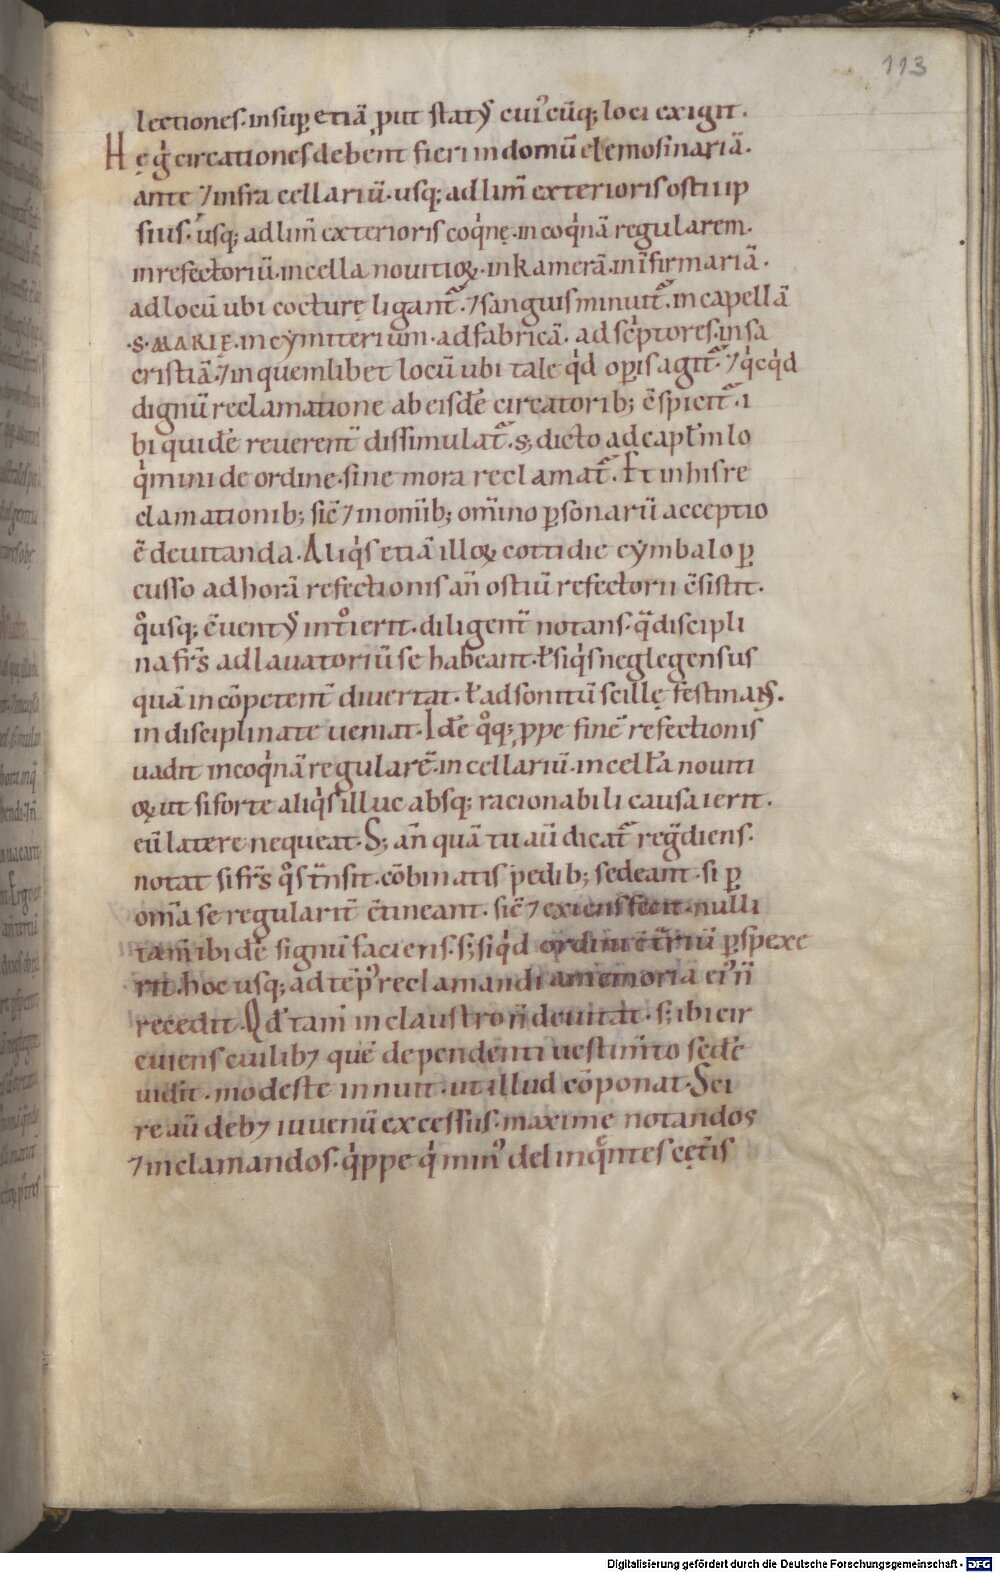 113
lectiones. insup̱ etiā ꝓut statꝰ cui᾽cūq; loci exigit.
Hę g̊ circationes debent fieri in domū elemosinariā.
ante ⁊ infra cellariū. usq; ad lim̄ exterioris ostii ip
sius. usq; ad lim̄ exterioris coq̇nę. in coq̇nā regularem.
in refectoriū. in cella novitioꝝ. in kamerā. in īfirmariā.
ad locū ubi cocturę ligant᷑. ⁊ sanguis minuit᷑. in capellā
.S. MARIĘ. in cymiterium. ad fabricā. ad scͥptores. in sa
cristiā. ⁊ in quemlibet locū ubi tale qͥd oꝑis agit᷑. ⁊ qͥcqͥd
dignū reclamatione ab eisdē circatorib; c̄spicit᷑. i
bi quidē reverent̄ dissimulat᷑. s; dicto ad capƚm lo
qͥmini de ordine. sine mora reclamat᷑. Et in his re
clamationib; sic̄ ⁊ in om̄ib; om̄ino ꝑsonarū acceptio
ē devitanda. Aliqͥs etiā illoꝝ cottidie cymbalo ꝑ
cusso ad horā refectionis an̄ ostiū refectorii c̄sistit.
qͦusq; c̄ventꝰ intͦierit. diligent̄ notans. qᷓ discipli
na frs̄ ad lavatoriū se habeant. ƚ siqͥs neglegens us
quā incōpetent̄ divertat. ƚ ad sonitū scillę festinans.
indisciplinate veniat. Idē qͦq; ꝓpe finē refectionis
vadit in coq̇nā regularē. in cellariū. in cellā noviti
oꝝ ut si forte aliqͥs illuc absq; racionabili causa ierit.
eū latere nequeat. S; an̄ quā tu aū dicat᷑ regᷓdiens.
notat si frs̄ qͦs tᷓnsit. cōbinatis pedib; sedeant. si ꝑ
om̄a se regularit̄ c̄tineant. sic̄ ⁊ exiens fecit. nulli
tam̄ ibidē signū faciens. s; siqͥd ordini c̄tᷓriū ꝑspexe
rit. hoc usq; ad tēp᾽ reclamandi a memoria ei᾽ n̄
recedit. Qd̄ tam̄ in claustro n̄ devitat. s; ibi cir
cuiens cuilib⁊ quē dependenti vestim̄to sedē
vidit. modeste innuit. ut illud cōponat. Sci
re aū deb⁊ iuvenū excessus. maxime notandos
⁊ inclamandos. qͥppe qͥ min᾽ delinqͣntes cęt̄is